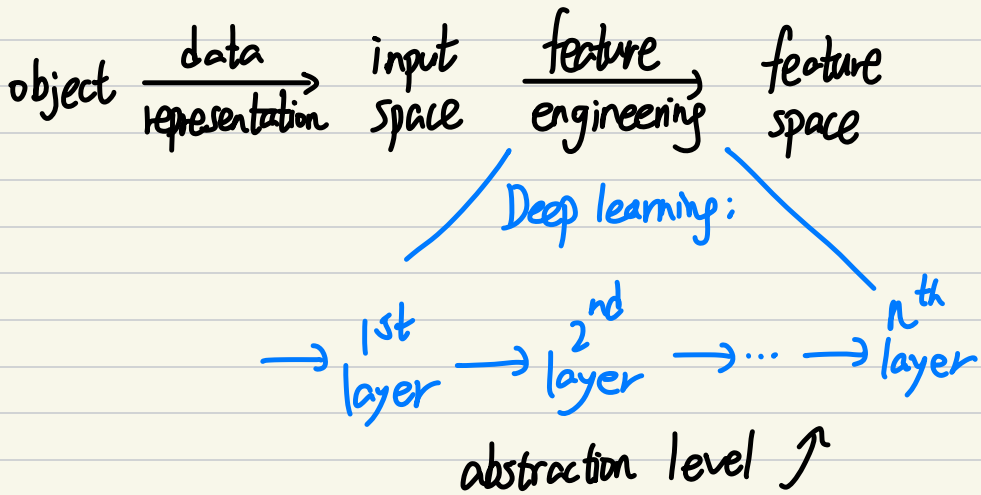 object data representation input space feature engineering feature space
Deep learning:
→ 1st layer → 2nd layer → ... → nth layer
abstraction level ↗